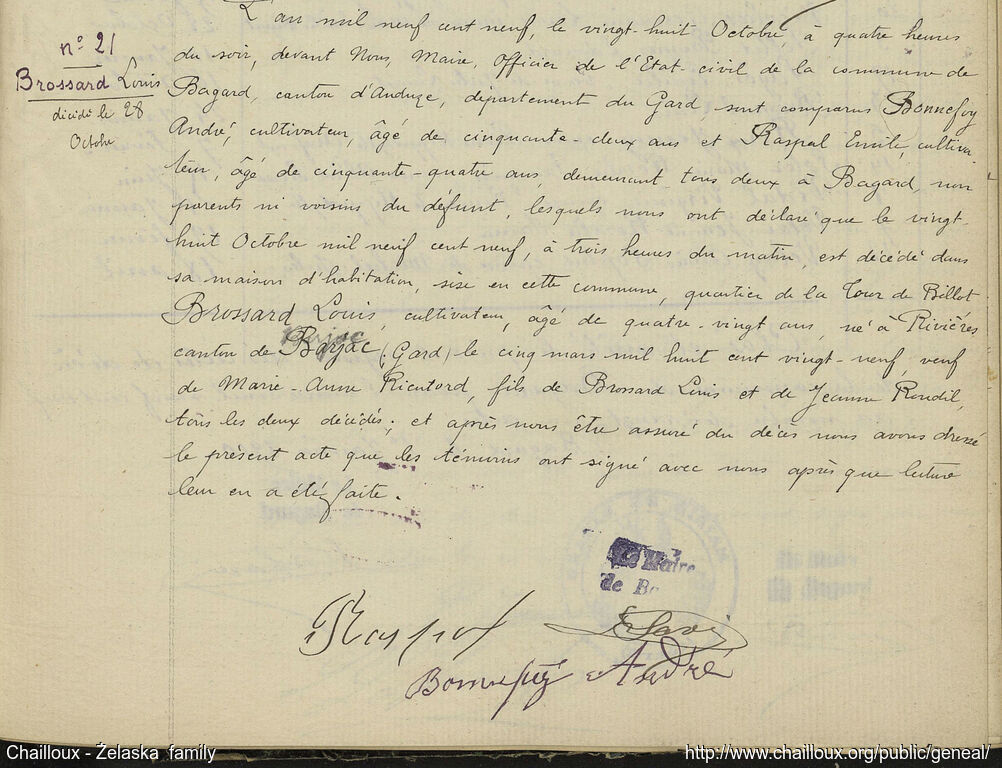 L'an mil neuf cent neuf, le vingt-huit Octobre à quatre heures
du soir, devant Nous, Maire, Officier de l'Etat-civil de la commune de
Bagard, canton d'Anduze, département du Gard, sont comparus Bonnefoy
André, cultivateur, âgé de cinquante-deux ans et Raspal Emile, cultiva-
teur, âgé de cinquante-quatre ans, demeurant tous deux à Bagard, non
parents ni voisins du défunt, lesquels nous ont déclaré que le vingt-
huit Octobre mil neuf cent neuf, à trois heures du matin, est décédé dans
sa maison d'habitation, sise en cette commune, quartier de la Tour de Billot
Brossard Louis, cultivateur, âgé de quatre-vingt ans, né à Rivières
canton de Barjac (Gard) le cinq mars mil huit cent vingt-neuf, veuf
de Marie-Anne Ricutord, fils de Brossard Louis et de Jeanne Roudil,
tous les deux décédés; et après nous être assuré du décès nous avons dressé
le présent acte que les témoins ont signé avec nous après que lecture
leur en a été faite.
n° 21
Brossard Louis
décédé le 28
Octobre
Le Maire
de Ba
Raspal
Bonnefoy André
Chailloux - Żelaska family
http://www.chailloux.org/public/geneal/